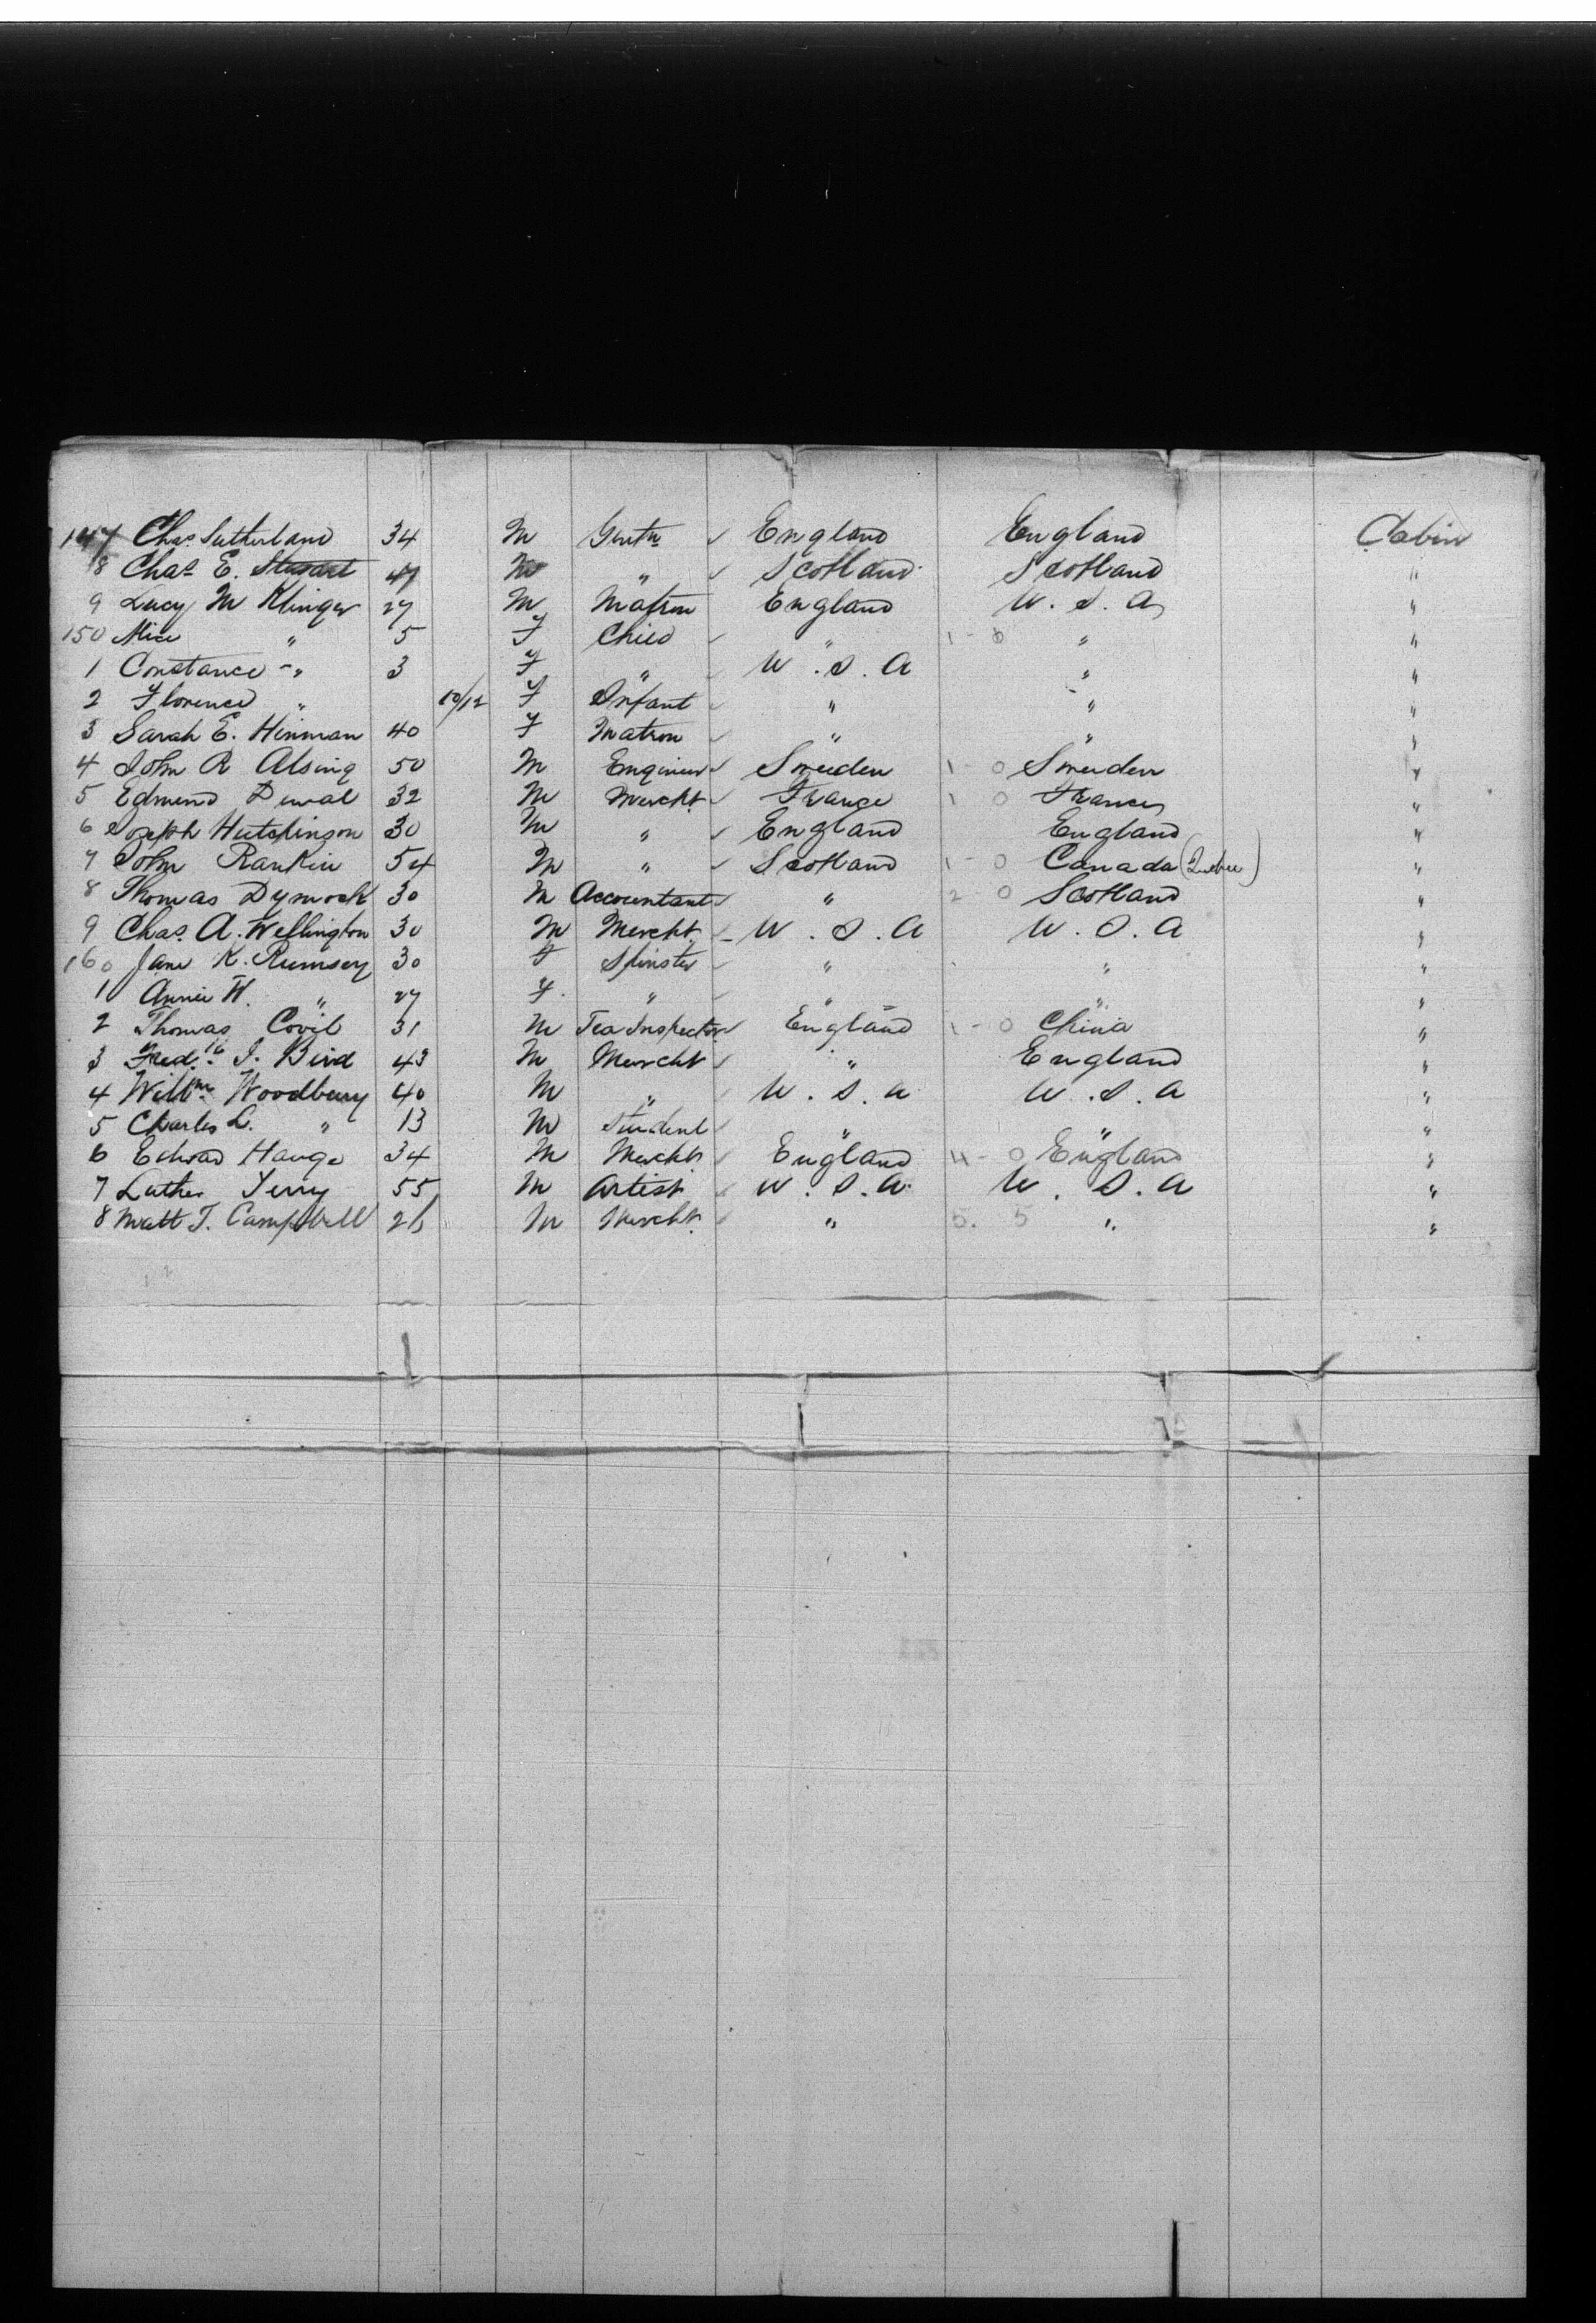 147 Chas. Sutherland 34 M Gentn ✓ England England Cabin
8 Chas. E. Stewart 41 M " ✓ Scotland Scotland "
9 Lucy M Klinger 27 M Matron England U.S.A "
150 Alice " 5 F Child " 1 - 0 " "
1 Constance " 3 F " U.S.A " "
2 Florence " 10/12 F Infant " " "
3 Sarah E. Hinman 40 F Matron ✓ " " "
4 John R Alsing 50 M Engineer ✓ Sweden 1 0 Sweden "
5 Edmund Duval 32 M Mercht ✓ France 1 0 France "
6 Joseph Hutchinson 30 M " ✓ England England "
7 John Rankin 54 M " ✓ Scotland 1 - 0 Canada (Quebec) "
8 Thomas Dymock 30 M Accountant ✓ " 2 0 Scotland "
9 Chas. A. Wellington 30 M Mercht. U.S.A U.S.A "
160 Jane K. Rumsey 30 F Spinster ✓ " " "
1 Annie W. " 27 F. " ✓ " " "
2 Thomas Covil 31 M Tea Inspector ✓ England 1 - 0 China "
3 Fred. J. Bird 43 M Mercht ✓ " England "
4 Willm. Woodbury 40 M " U.S.A U.S.A "
5 Charles L. " 13 M Student " " "
6 Edwad Hauge 34 M Mercht England 4 - 0 England "
7 Luther Terry 55 M Artist U.S.A. U.S.A "
8 Matt T. Campbell 26 M Mercht. " 5. 5 " "